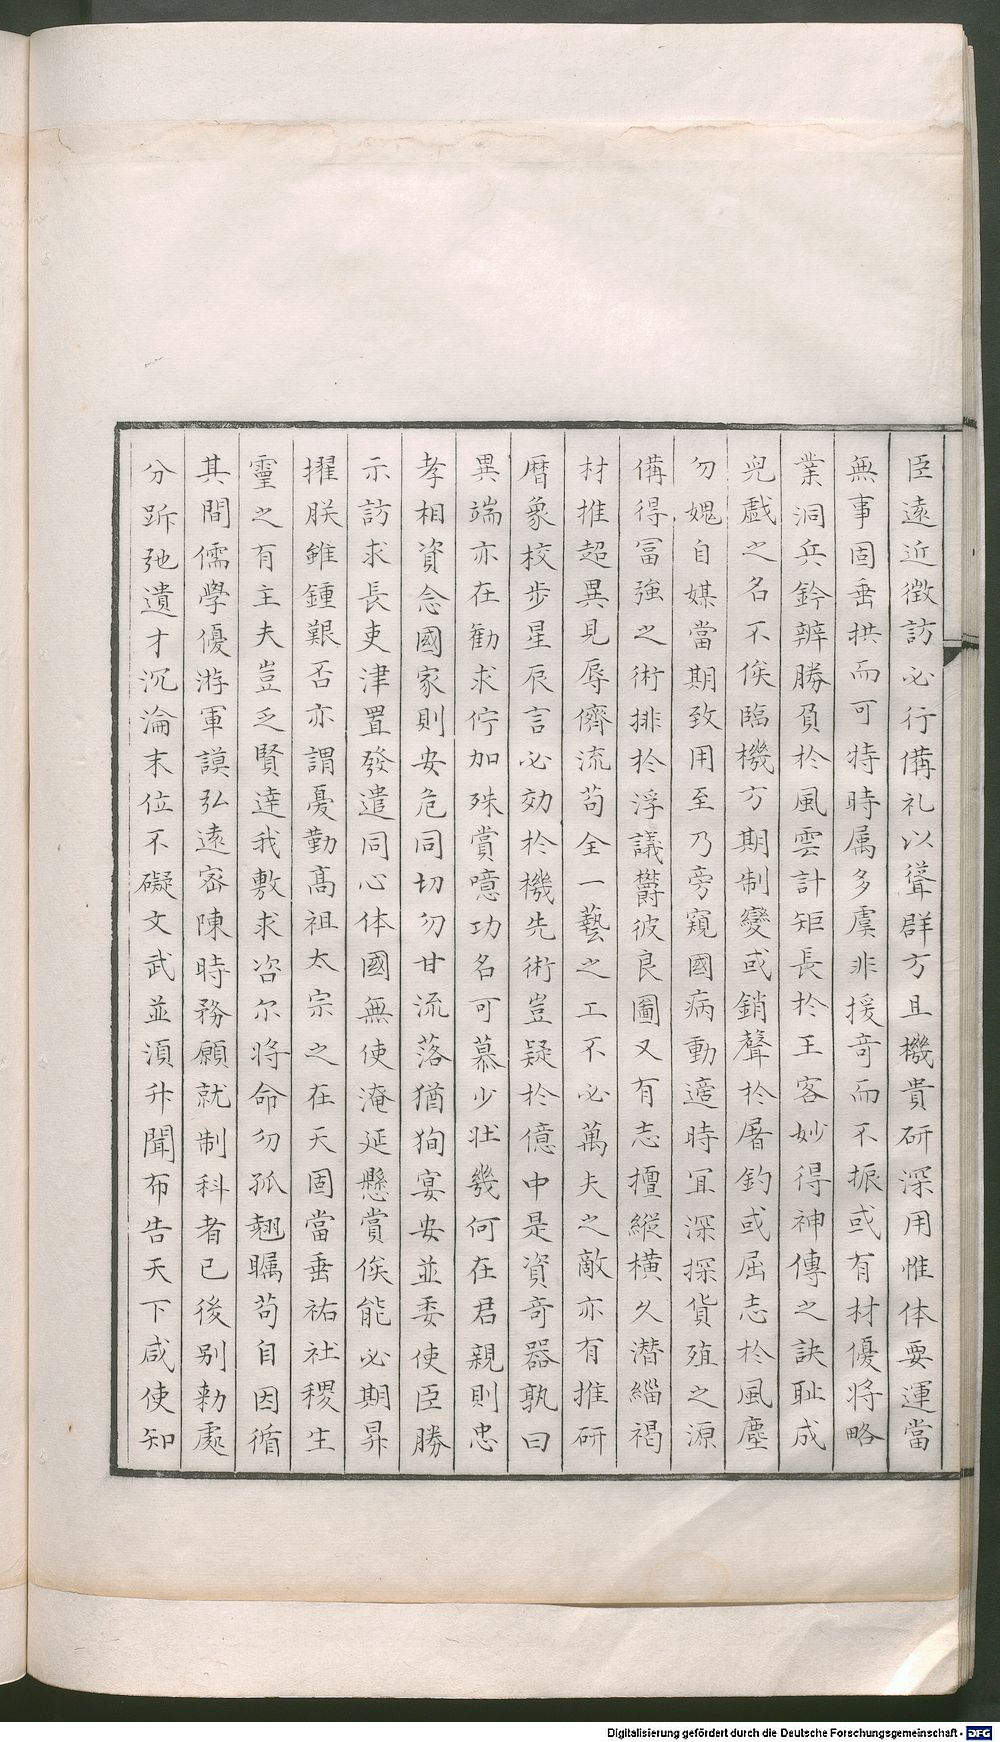 臣遠近徴訪必行俻礼以聳群方且機貴研深用惟体要運當
無事固垂拱而可持時属多虞非援竒而不振或有材優將略
業洞兵鈐辨勝負於風雲計矩長於王客妙得神傳之訣耻成
兒戱之名不俟臨機方期制變或銷聲於屠釣或屈志於風塵
勿媿自媒當期致用至乃旁窺國病動適時宜深探貨殖之源
俻得冨強之術排於浮議欝彼良圖又有志擅縱橫久潜緇褐
材推超異見辱儕流苟全一藝之工不必萬夫之敵亦有推研
曆象校步星辰言必効於機先術豈疑於億中是資竒器孰曰
異端亦在勸求佇加殊賞噫功名可慕少壮幾何在君親則忠
孝相資念國家則安危同切勿甘流落猶狥宴安並委使臣勝
示訪求長吏津置發遣同心体國無使淹延懸賞俟能必期昇
擢朕雖鍾艱否亦謂憂勤髙祖太宗之在天固當垂祐社稷生
霊之有主夫豈乏賢達我敷求咨尔将命勿孤翹矚苟自因循
其間儒學優游軍謨弘遠宻陳時務願就制科者已後别勑處
分跅弛遺才沉淪末位不礙文武並湏升聞布告天下咸使知
Digitalisierung gefördert durch die Deutsche Forschungsgemeinschaft - DFG